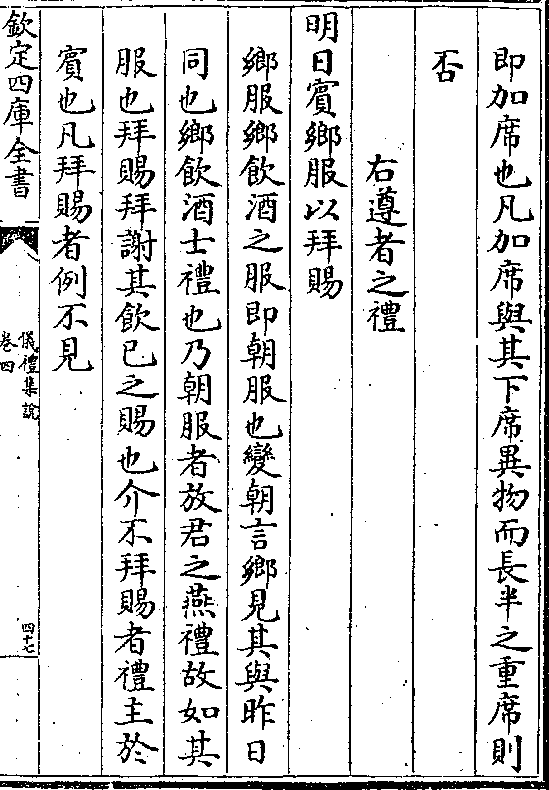 即加席也凡加席與其下席異物而長半之重席則
否
右遵者之禮
明日賓鄉服以拜賜
鄉服鄉飲酒之服即朝服也變朝言鄉見其與昨日
同也鄉飲酒士禮也乃朝服者放君之燕禮故如其
服也拜賜拜謝其飲已之賜也介不拜賜者禮主於
賓也凡拜賜者例不見
欽定四庫全書
儀禮集說
卷四
四十七